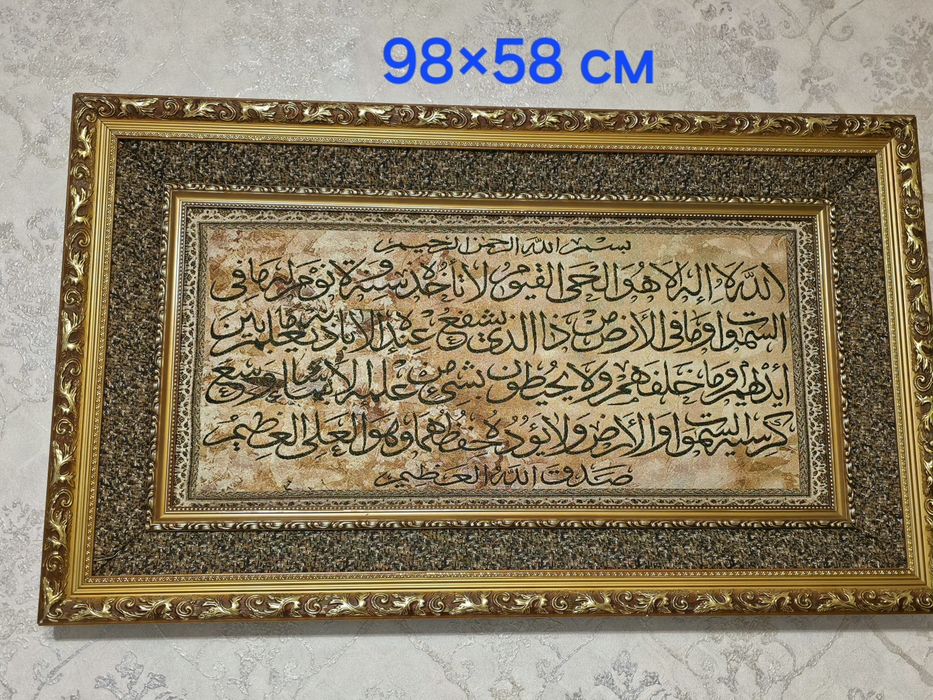 98×58 см
بسم الله الرحمن الرحيم
الله لا إله إلا هو الحي القيوم لا تأخذه سنة ولا نوم له ما في
السموات وما في الأرض من ذا الذي يشفع عنده إلا بإذنه يعلم ما بين
أيديهم وما خلفهم ولا يحيطون بشيء من علمه إلا بما شاء وسع
كرسيه السموات والأرض ولا يؤده حفظهما وهو العلي العظيم
صدق الله العظيم